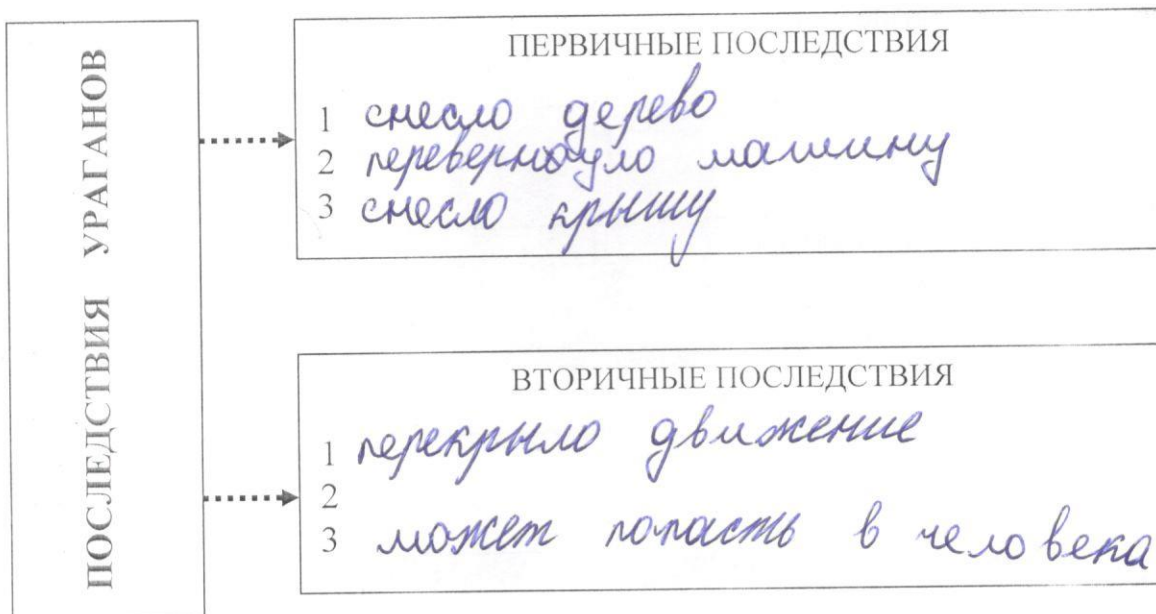 ПОСЛЕДСТВИЯ УРАГАНОВ
ПЕРВИЧНЫЕ ПОСЛЕДСТВИЯ
1 снесло дерево
2 перевернуло машину
3 снесло крышу
ВТОРИЧНЫЕ ПОСЛЕДСТВИЯ
1 перекрыло движение
2
3 может попасть в человека